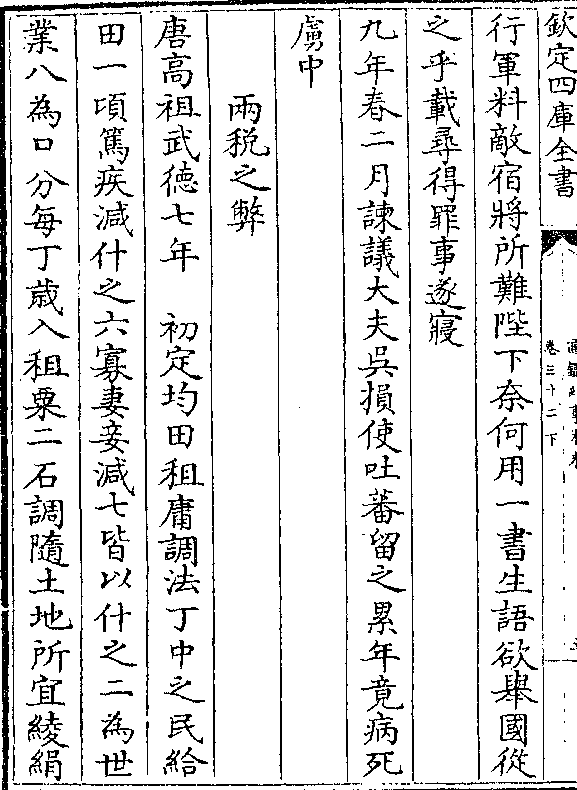 欽定四庫全書
通鑑紀事本末
卷三十二下
行軍料敵宿將所難陛下奈何用一書生語欲舉國從
之乎載尋得罪事遂寢
九年春二月諫議大夫吳損使吐蕃留之累年竟病死
虜中
兩税之弊
唐高祖武德七年 初定均田租庸調法丁中之民給
田一頃篤疾減什之六寡妻妾減七皆以什之二為世
業八為口分每丁歲入租粟二石調隨土地所宜綾絹